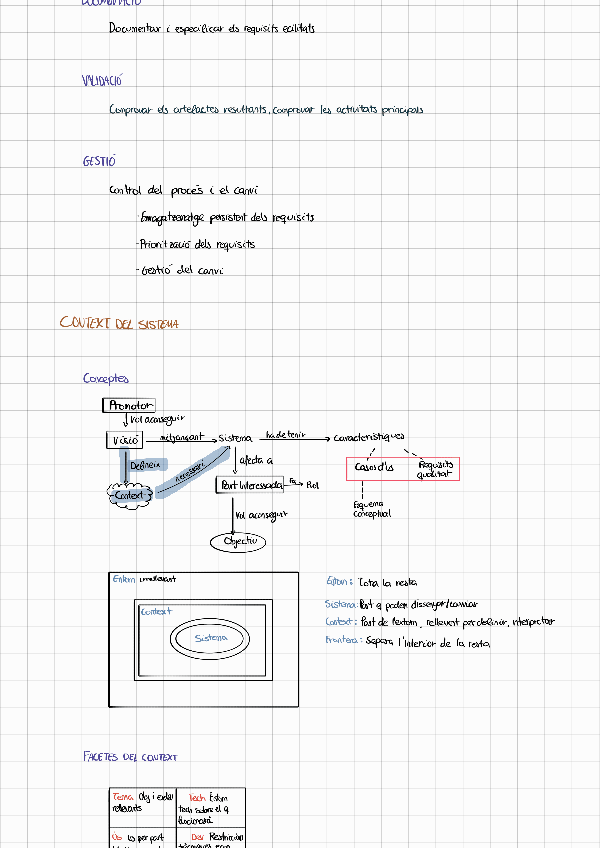 DOCUMENTACIÓ
Documentar i especificar els requisits
VALIDACIÓ
Comprovar els artefactes resultants, comprovar les activitats principals
GESTIÓ
Control del procés i el canvi
-Emagatzematge persistent dels requisits
-Priorització dels requisits
-Gestió del canvi
CONTEXT DEL SISTEMA
Conceptes
Promotor
Vol aconseguir
Visió mitjançant Sistema ha de tenir característiques
Defineix necessari afecta a Casos d'ús Requisits qualitat
Context Part Interessada Rol
Esquema conceptual
Vol aconseguir
Objectiu
Entorn irrellevant
Context
Sistema
Entorn: Tota la resta
Sistema: Part q podem dissenyar/canviar
Context: Part de l'entorn, rellevant per definir, interpretar
Frontera: Separa l'interior de la resta
FACETES DEL CONTEXT
Tema Obj i esdev
rellevants
Tech Entorn
tech sobre el q
funcionarà
Ús Les per part
Des Restriccions